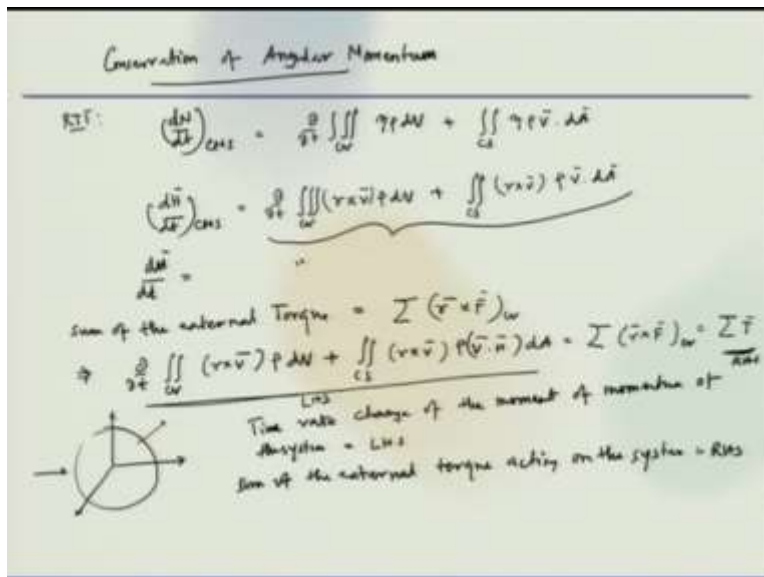 Conservation of Angular Momentum
RTT: (dN/dt)CMS = ∂/∂t ∭CV ηρ dV + ∬CS ηρ V̄ . dĀ
(dH̄/dt)CMS = ∂/∂t ∭CV (r×v̄) ρ dV + ∬CS (r×v̄) ρ v̄ . dĀ
dH̄/dt = "
sum of the external Torque = Σ (r̄ × F̄)CV
⇒ ∂/∂t ∬CV (r×v̄) ρ dV + ∬CS (r×v̄) ρ(v̄.n̄) dA = Σ (r̄×F̄)CV = Σ T̄
LHS RHS
Time rate change of the moment of momentum of
the system = LHS
Sum of the external torque acting on the system = RHS